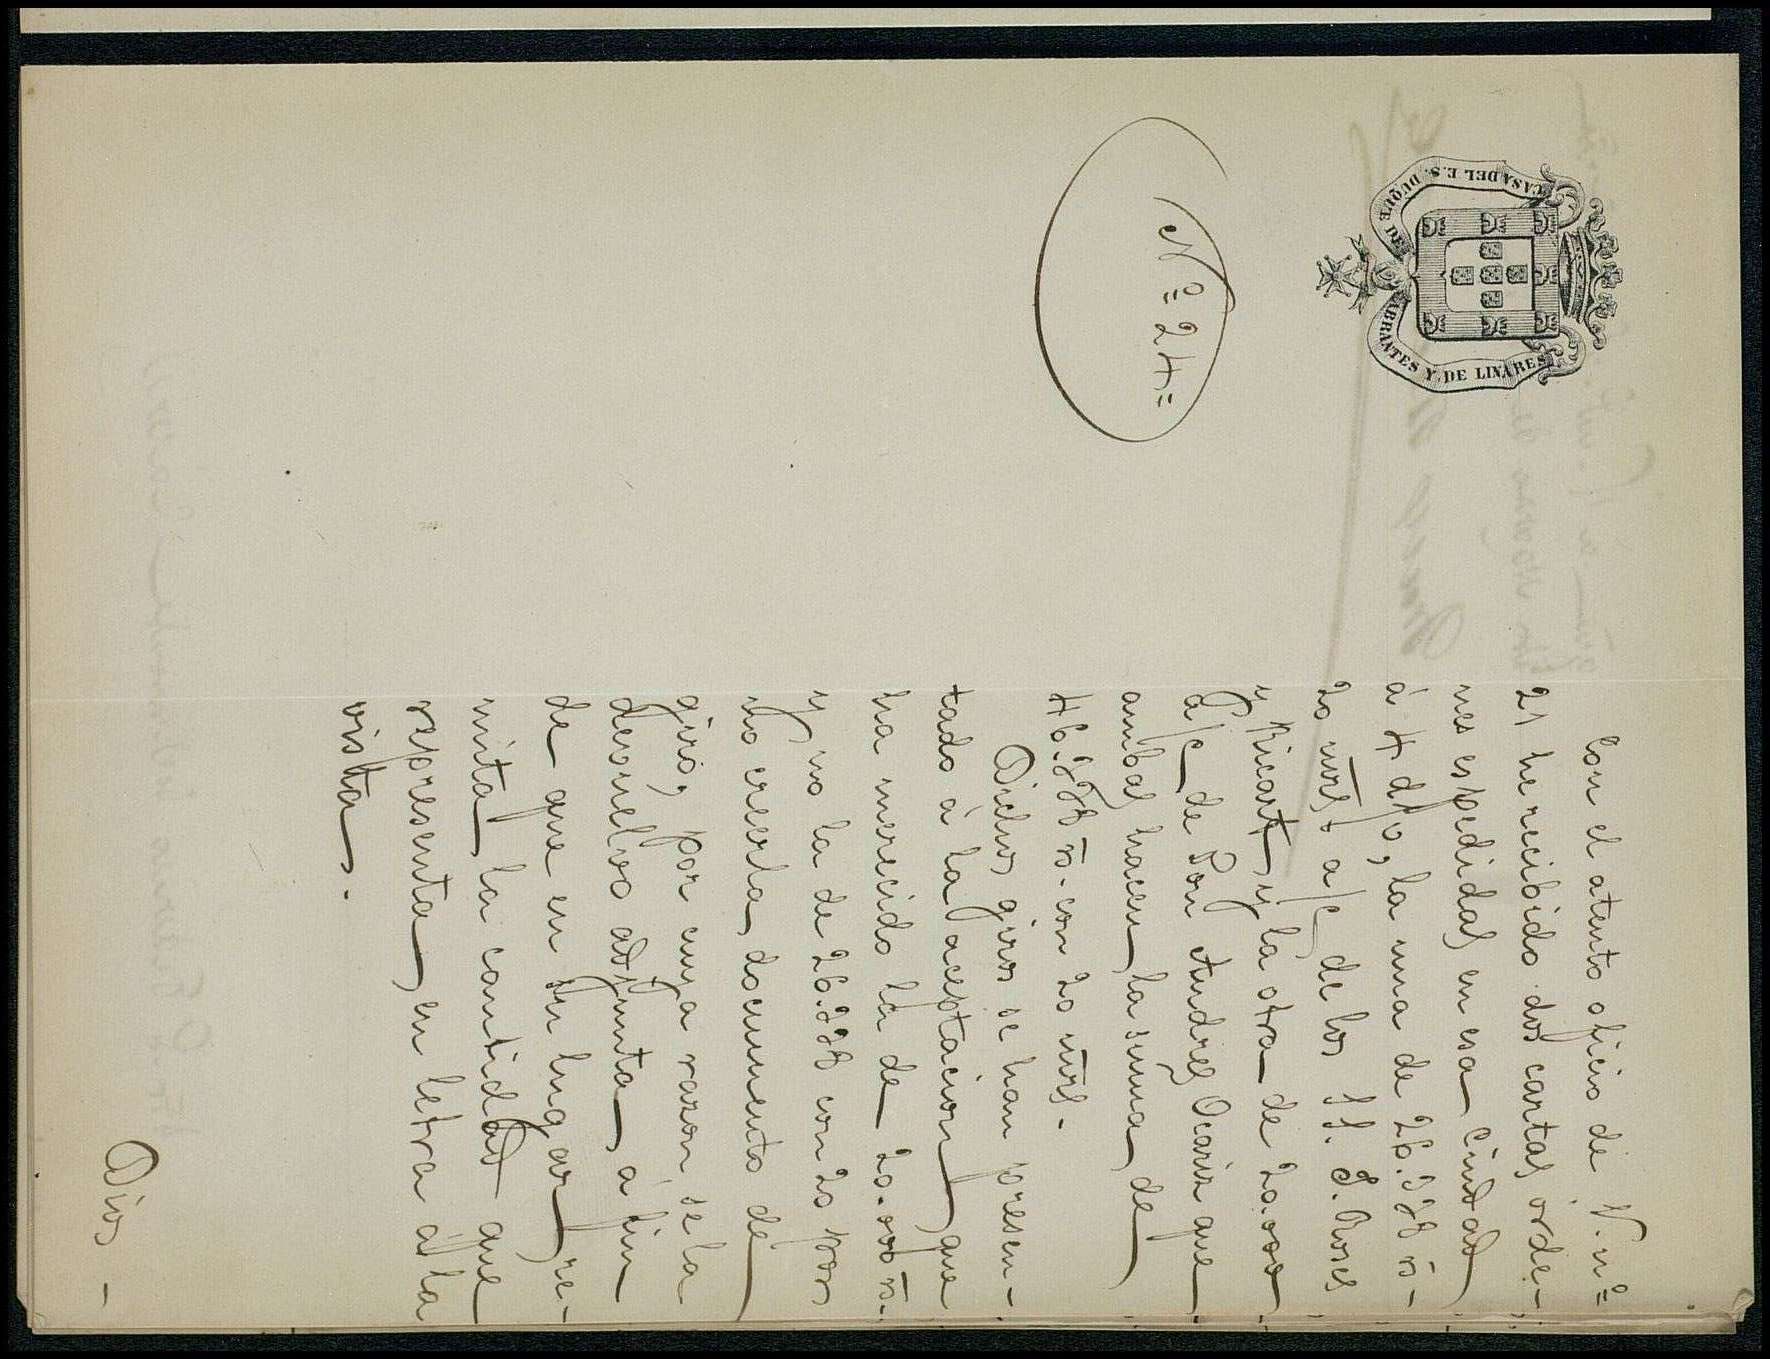 CASA DEL E.S. DUQUE DE ABRANTES Y DE LINARES
Nº 24=
Con el atento oficio de V. nº
21 he recibido dos cartas orde-
nes espedidas en esa Ciudad
á 4 d/v, la una de 26.338 rs-
20 mrs a/c de los SS. J. Roses
y Ricart y la otra de 20.000
a/c de Don Andres Ocariz que
ambas hacen la suma de
46.338 rs. con 20 mrs.
Dichos giros se han presen-
tado á la aceptacion que
ha merecido la de 20.000 rs.
y no la de 26.338 con 20 por
no creerla documento de
giro, por cuya razon se la
devuelvo adjunta á fin
de que en su lugar re-
mita la cantidad que
representa en letra á la
vista.
Dios -